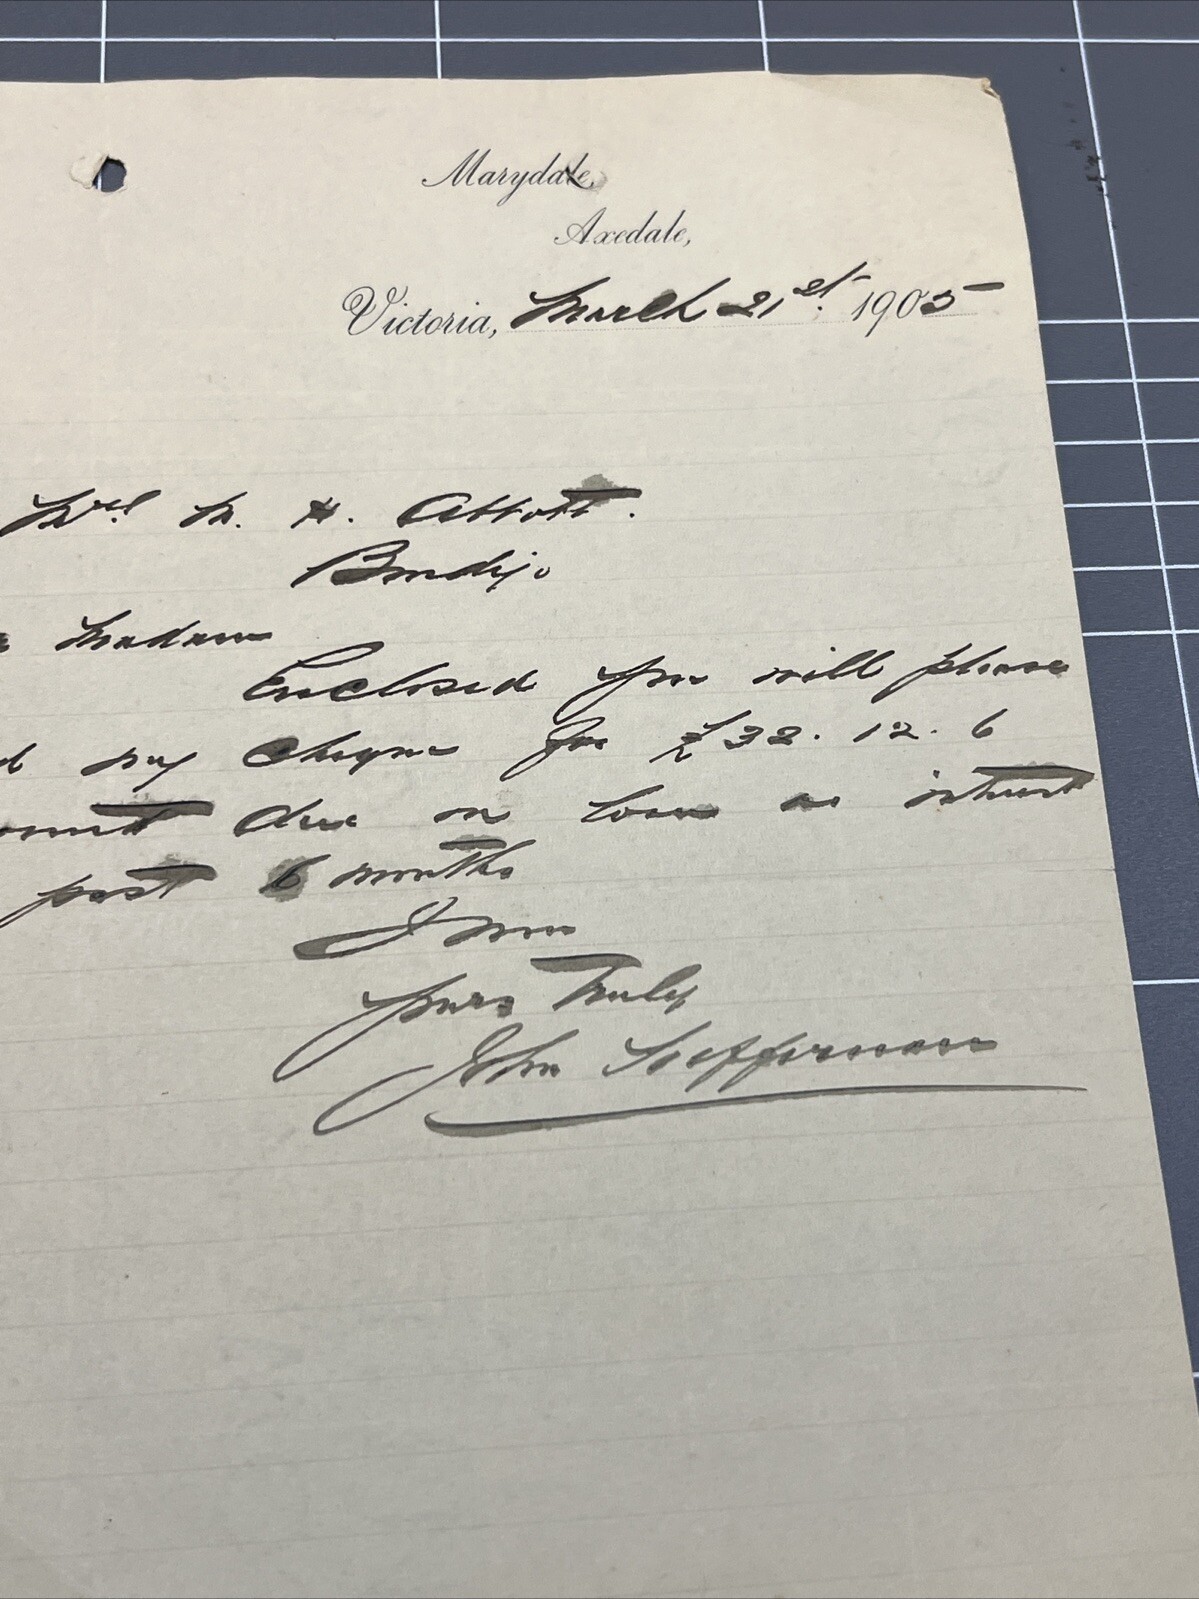 Marydale,
Axedale,
Victoria, March 21st. 1905
Mrs. M. H. Abbott.
Bendigo
Madam
Enclosed you will please
my cheque for £32.12.6
due on loan as interest
past 6 months
I am
yours Truly
John Heffernan